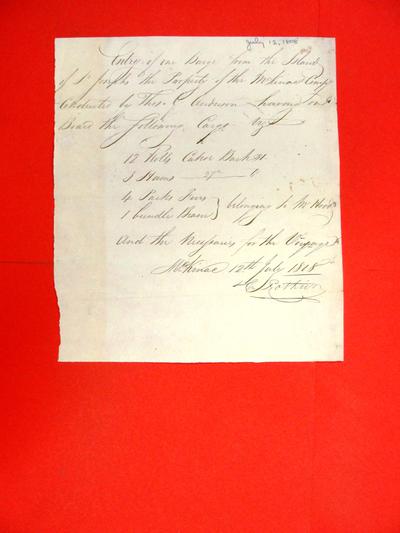 July 12, 1808
Entry of one Barge from the Island
of St Josephs the Property of the McKinac Comp
Conducted by Thos. G. Anderson having on
Board the following Cargo Viz
12 Rolls Bark
3
4 Packs Furs
1 bundle } belonging to Mr
And the Necessaries for the Voyage
McKinac 12th July 1808